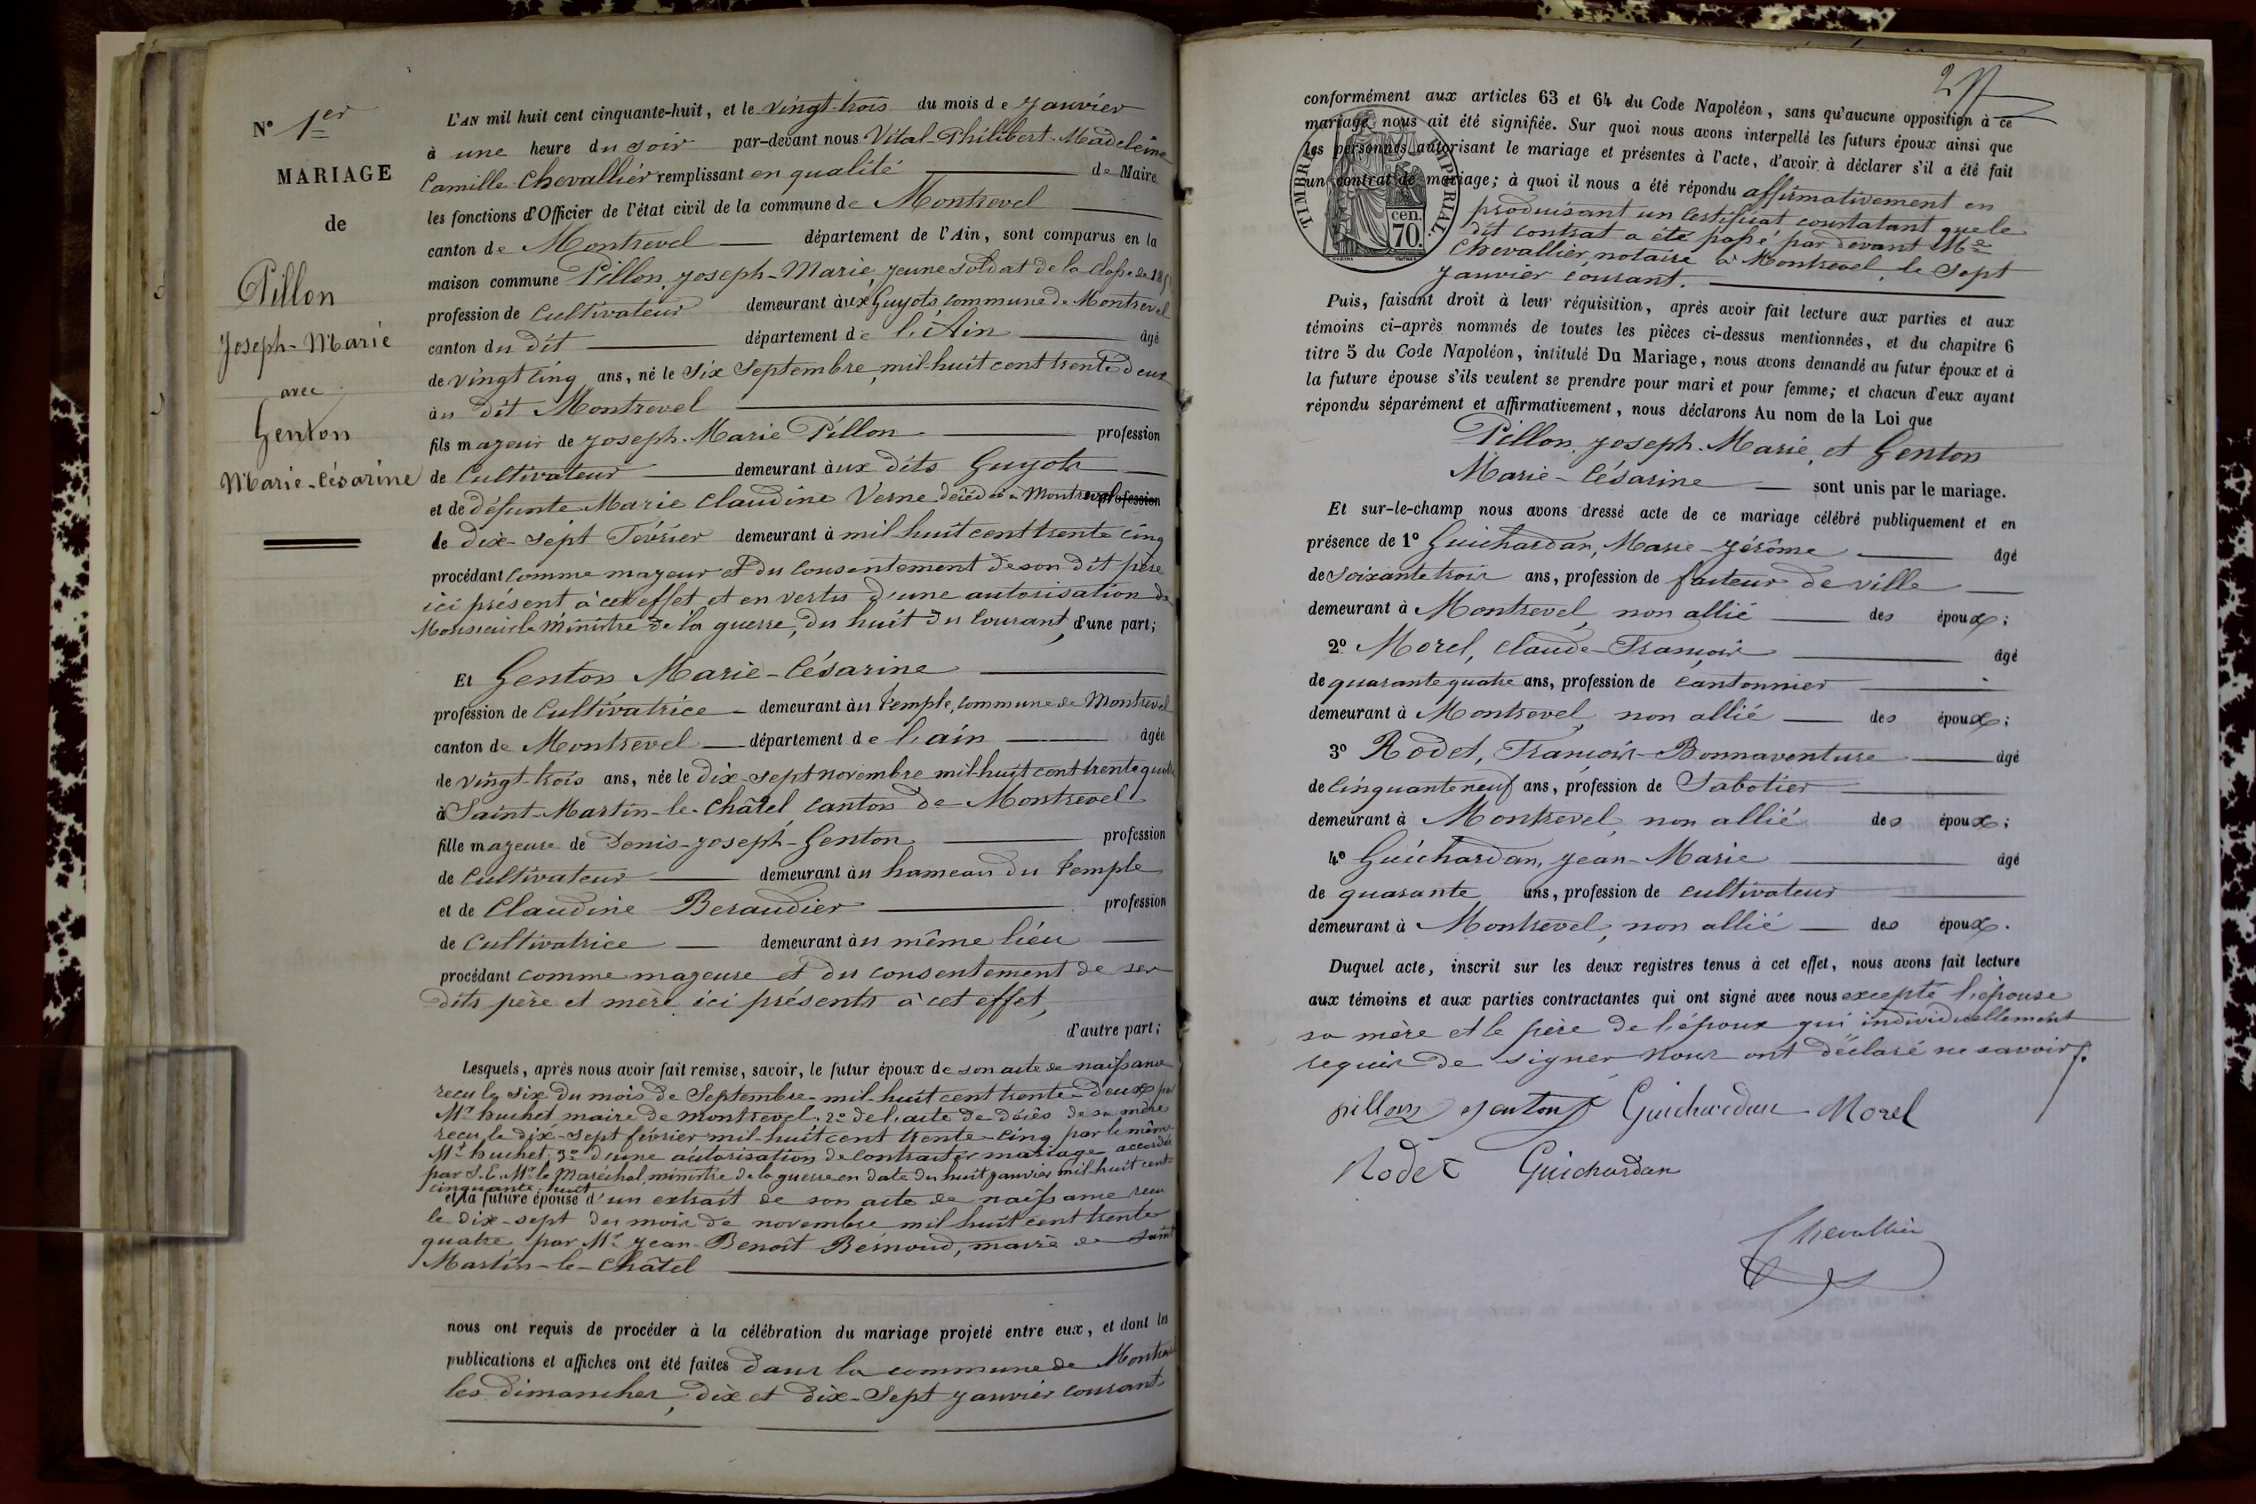 N° 1er
MARIAGE
de
Pillon
Joseph-Marie
avec
Genton
Marie-Césarine
L'AN mil huit cent cinquante-huit, et le vingt-trois du mois de Janvier
à une heure du soir par-devant nous Vital-Philibert-Madeleine
Camille Chevallier remplissant en qualité de Maire
les fonctions d'Officier de l'état civil de la commune de Montrevel
canton de Montrevel département de l'Ain, sont comparus en la
maison commune Pillon, Joseph-Marie, jeune soldat de la Classe de
profession de Cultivateur demeurant aux Guyots, commune de Montrevel
canton du dit département de l'Ain âgé
de vingt cinq ans, né le Six Septembre mil-huit cent trente deux
au dit Montrevel
fils majeur de Joseph-Marie Pillon profession
de Cultivateur demeurant aux dits Guyots
et de défunte Marie Claudine Verne décédée à Montrevel profession
le dix-sept Février demeurant à mil-huit cent trente cinq
procédant comme majeur et du consentement de son dit père
ici présent à cet effet et en vertu d'une autorisation de
Monsieur le Ministre de la guerre, du huit du Courant, d'une part;
Et Genton Marie-Césarine
profession de Cultivatrice demeurant au temple, commune de Montrevel
canton de Montrevel département de l'ain âgée
de vingt-trois ans, née le Dix-sept novembre mil-huit cent trente quatre
à Saint-Martin-le-Châtel canton de Montrevel
fille majeure de Denis-Joseph-Genton profession
de Cultivateur demeurant au hameau du temple
et de Claudine Beraudier profession
de Cultivatrice demeurant au même lieu
procédant comme majeure et du consentement de ses
dits père et mère ici présents à cet effet,
d'autre part;
Lesquels, après nous avoir fait remise, savoir, le futur époux de son acte de naissance
reçu le six du mois de Septembre mil-huit cent trente-deux par
Mr huchet maire de Montrevel. 2° de l'acte de décès de sa mère
reçu le dix-sept février mil-huit cent trente-cinq par le même
Mr huchet; 3° d'une autorisation de Contracter mariage accordée
par S. E. Mr le Maréchal, ministre de la guerre en date du huit janvier mil huit cent
cinquante-huit
et la future épouse d'un extrait de son acte de naissance reçu
le dix-sept du mois de novembre mil huit cent trente
quatre par Mr Jean-Benoît Bernoud, maire de Saint
Martin-le-Châtel
nous ont requis de procéder à la célébration du mariage projeté entre eux, et dont les
publications et affiches ont été faites dans la commune de Montrevel
les dimanches, dix et dix-Sept Janvier courant
conformément aux articles 63 et 64 du Code Napoléon, sans qu'aucune opposition à ce
mariage nous ait été signifiée. Sur quoi nous avons interpellé les futurs époux ainsi que
les personnes autorisant le mariage et présentes à l'acte, d'avoir à déclarer s'il a été fait
un contrat de mariage; à quoi il nous a été répondu affirmativement en
produisant un Certificat constatant que le
dit contrat a été passé par devant Me
Chevallier, notaire à Montrevel, le Sept
Janvier courant.
TIMBRE IMPERIAL.
cen.
70.
Puis, faisant droit à leur réquisition, après avoir fait lecture aux parties et aux
témoins ci-après nommés de toutes les pièces ci-dessus mentionnées, et du chapitre 6
titre 5 du Code Napoléon, intitulé Du Mariage, nous avons demandé au futur époux et à
la future épouse s'ils veulent se prendre pour mari et pour femme; et chacun d'eux ayant
répondu séparément et affirmativement, nous déclarons Au nom de la Loi que
Pillon, Joseph-Marie, et Genton
Marie-Césarine sont unis par le mariage.
Et sur-le-champ nous avons dressé acte de ce mariage célébré publiquement et en
présence de 1° Guichardan, Marie-Jérôme âgé
de soixante trois ans, profession de facteur de ville
demeurant à Montrevel, non allié des époux;
2° Morel, Claude-François âgé
de quarante quatre ans, profession de Cantonnier
demeurant à Montrevel, non allié des époux;
3° Rodet, François-Bonnaventure âgé
de Cinquante neuf ans, profession de Sabotier
demeurant à Montrevel, non allié des époux;
4° Guichardan, Jean-Marie âgé
de quarante ans, profession de cultivateur
demeurant à Montrevel, non allié des époux.
Duquel acte, inscrit sur les deux registres tenus à cet effet, nous avons fait lecture
aux témoins et aux parties contractantes qui ont signé avec nous excepté l'épouse
sa mère et le père de l'époux qui individuellement
requis de signer nous ont déclaré ne savoir.
pillon genton Guichardan Morel
Rodet Guichardan
Chevallier